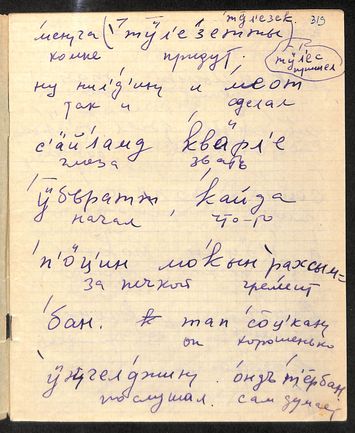 тӱл'езек. 319
менуга ( тӱл'езетты )
ко мне придут. тӱл'ес пришел
ну нил'д'ину и меот
так и сделал
с'ӓй'ламд квӓрл'е
глоза звать
ӱбъратт, кайда
начал что-то
п'ӧц'ин мокын рахсым=
за печкой гремит
бан. тап сӧц'кащ
он хорошенько
ӱнгел'джину. ондъ т'е̄рбан
послушал. сам думает